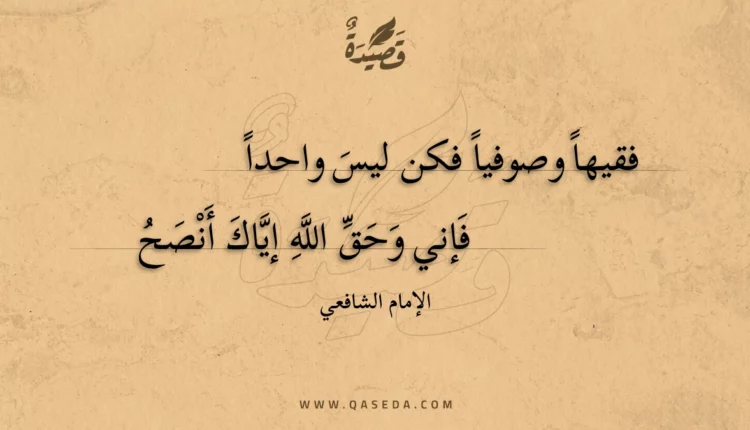 قَصِيدَةٌ
فقيهاً وصوفياً فكن ليسَ واحداً
فَإني وَحَقِّ اللَّهِ إيَّاكَ أَنْصَحُ
الإمام الشافعي
WWW.QASEDA.COM